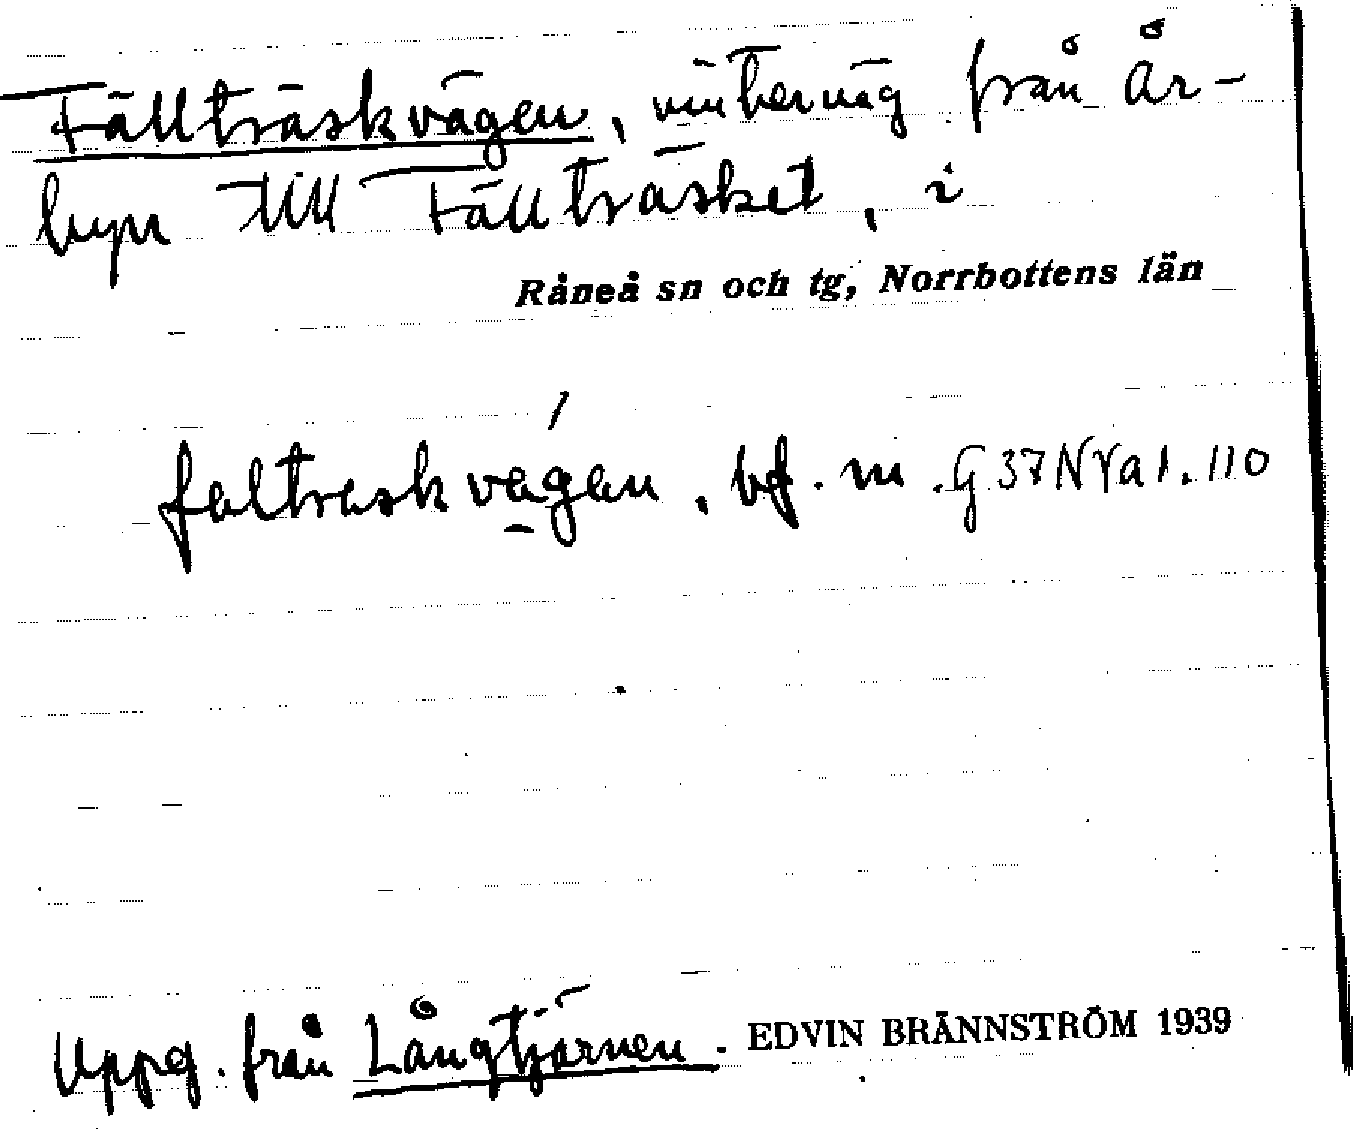 Fällträskvägen, vinterväg från År-
byn till Fällträsket, i
Råneå sn och tg, Norrbottens län
faltreskvégan, bf. m. G 37 NVa 1. 110
Uppg. från Långtjärnen. EDVIN BRÄNNSTRÖM 1939